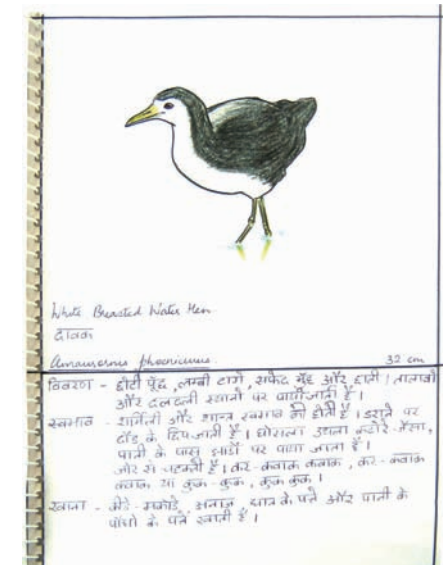 White Breasted Water Hen
दावक
Amaurornis phoenicurus 32 cm
विवरण - छोटी पूँछ, लम्बी टांगे, सफेद मुँह और छाती। तालाबों
और दलदली स्थानों पर पायी जाती है।
स्वभाव - शर्मिली और शान्त स्वभाव की होती है। डराने पर
दौड़ के छिप जाती है। घोंसला उथला कटोरे-जैसा,
पानी के पास झाड़ी पर पाया जाता है।
जोर से चहकती है। कर-क्वाक क्वाक, कर-क्वाक
क्वाक या कुक-कुक, कुक कुक।
खाना - कीड़े-मकोड़े, अनाज, धान के पत्ते और पानी के
पौधों के पत्ते खाती है।